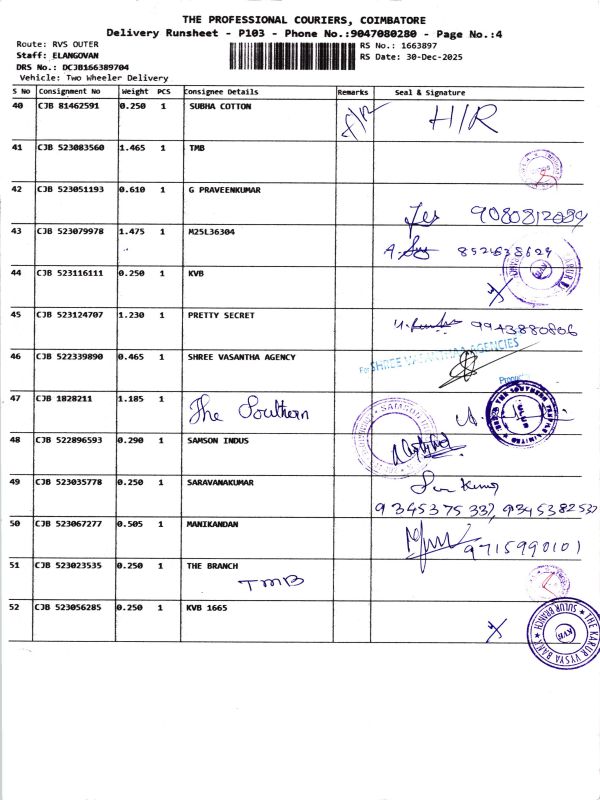 THE PROFESSIONAL COURIERS, COIMBATORE
Delivery Runsheet - P103 - Phone No.:9047080280 - Page No.:4
Route: RVS OUTER
RS No.: 1663897
Staff: ELANGOVAN
RS Date: 30-Dec-2025
DRS No.: DCJB166389704
Vehicle: Two Wheeler Delivery
S No Consignment No Weight PCS Consignee Details Remarks Seal & Signature
40 CJB 81462591 0.250 1 SUBHA COTTON H/R
41 CJB 523083560 1.465 1 TMB
42 CJB 523051193 0.610 1 G PRAVEENKUMAR
43 CJB 523079978 1.475 1 M25L36304
44 CJB 523116111 0.250 1 KVB
45 CJB 523124707 1.230 1 PRETTY SECRET 9943880806
46 CJB 522339890 0.465 1 SHREE VASANTHA AGENCY
For SHREE VASANTHAA AGENCIES
47 CJB 1828211 1.185 1 The Southern
48 CJB 522896593 0.290 1 SAMSON INDUS
49 CJB 523035778 0.250 1 SARAVANAKUMAR
50 CJB 523067277 0.505 1 MANIKANDAN 9715990101
51 CJB 523023535 0.250 1 THE BRANCH
TMB
52 CJB 523056285 0.250 1 KVB 1665
THE KARUR VYSYA BANK SULUR BRANCH KVB